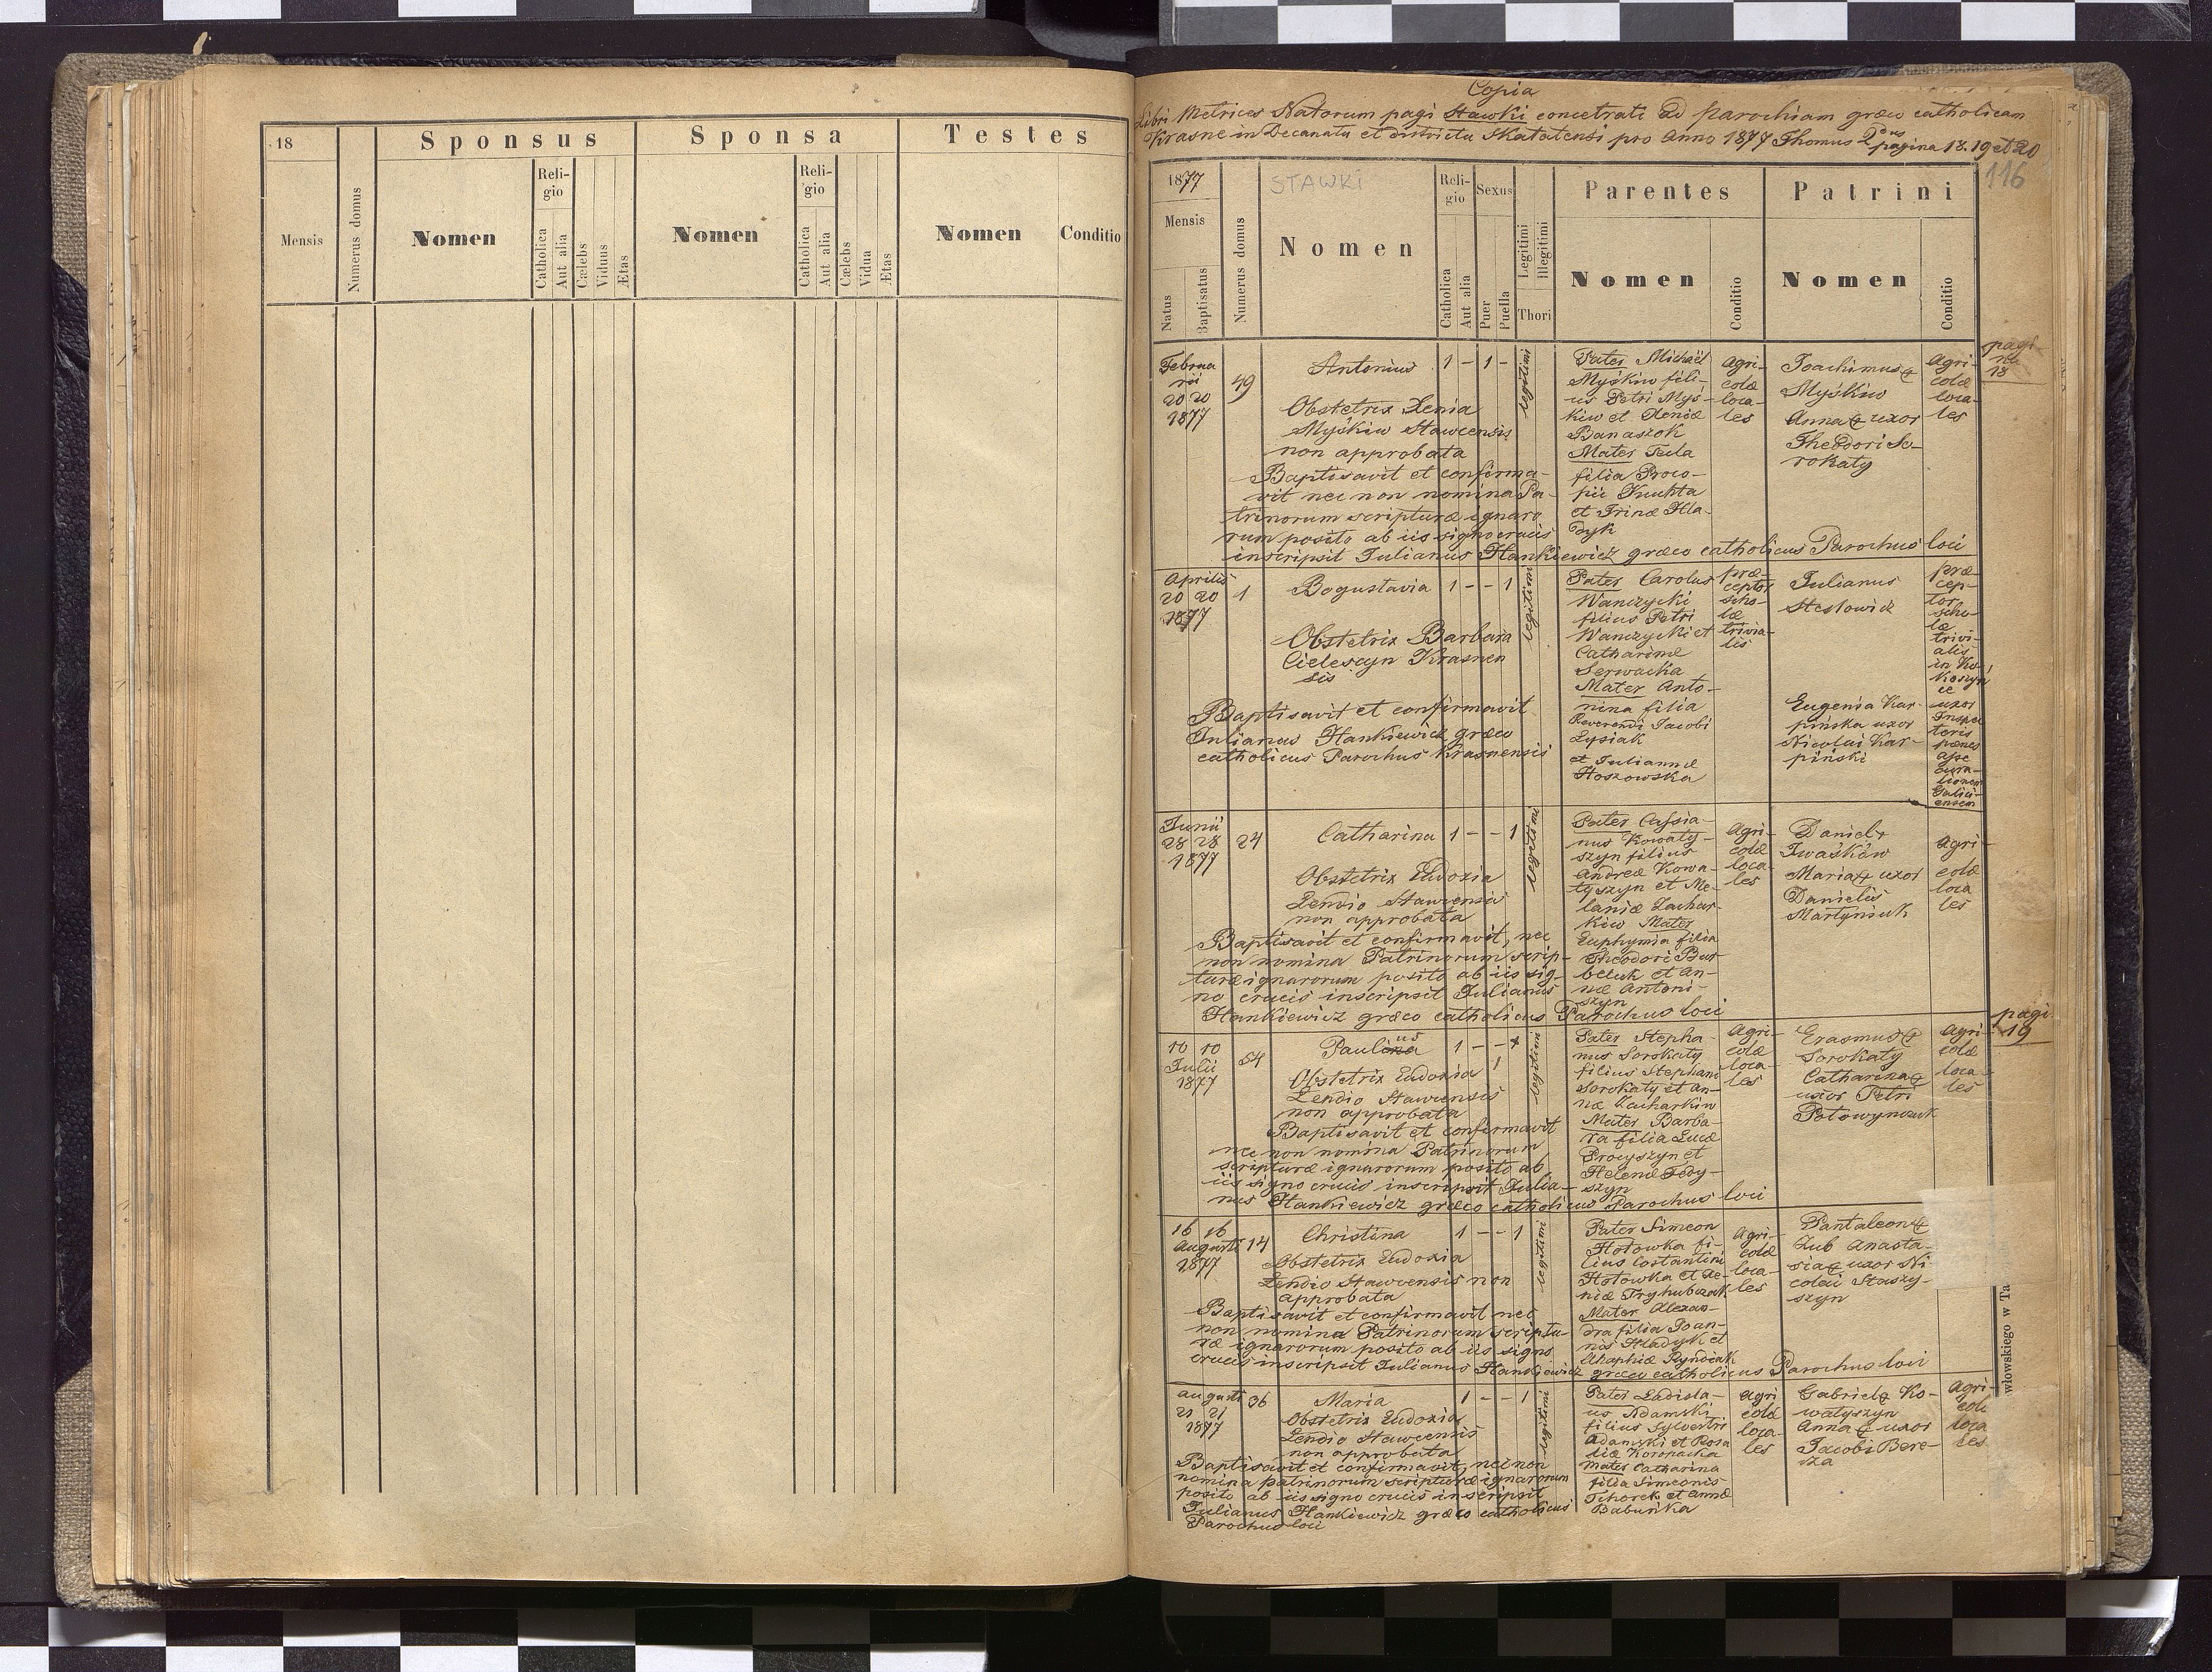 18
Mensis
Numerus domus
Sponsus
Nomen
Reli-
gio
Catholica
Aut alia
Cælebs
Viduus
Ætas
Sponsa
Nomen
Reli-
gio
Catholica
Aut alia
Cælebs
Vidua
Ætas
Testes
Nomen
Conditio
Copia
Libri Metrices Natorum pagi Stawki concetrati ad parochiam græco catholicam
Krasne in Decanatu et districtu Skalatensi pro Anno 1877 Thomus 2dus pagina 18. 19 et 20
116
1877
STAWKI
Mensis
Natus
Baptisatus
Numerus domus
Nomen
Reli-
gio
Catholica
Aut alia
Sexus
Puer
Puella
Legitimi
Illegitimi
Thori
Parentes
Nomen
Conditio
Patrini
Nomen
Conditio
pagi-
na
18
Februa
rii
20 20
1877
49
Antonius
1 - 1 -
legitimi
Obstetrix Xenia
Myśkiw Stawcensis
non approbata
Baptisavit et confirma-
vit nec non nomina Pa-
trinorum scripturæ ignaro
rum posito ab iis signo crucis
inscripsit Julianus Hankiewicz græco catholicus Parochus loci
Pater Michaël
Myśkiw fili-
us Petri Myś-
kiw et Xeniæ
Banaszok
Mater Tecla
filia Proco-
pii Knuhta
et Irinæ Hla-
dyk
Agri-
colæ
loca-
les
Joachimus
Myśkiw
Anna uxor
Theodori So-
rokaty
Agri-
colæ
loca-
les
Aprilis
20 20
1877
1
Boguslavia
1 - - 1
legitimi
Obstetrix Barbara
Cielescyn Krasnen
sis
Baptisavit et confirmavit
Julianus Hankiewicz græco
catholicus Parochus Krasnensis
Pater Carolus
Wanczycki
filius Petri
Wanczycki et
Catharinæ
Serwacka
Mater Anto-
nina filia
Reverendi Jacobi
Lysiak
et Juliannæ
Hoszowska
præ-
ceptor
scho-
læ
trivia-
lis
Julianus
Steslowicz
præ
cep-
tor
scho-
læ
trivi-
alis
in Ko-
koszyn
ce
Eugenia Kar-
pińska uxor
Nicolai Kar-
piński
uxor
Inspec
toris
penes
Junii
28 28
1877
24
Catharina
1 - - 1
legitimi
Obstetrix Eudoxia
Lendio Stawcensis
non approbata
Baptisavit et confirmavit, nec
non nomina Patrinorum scrip-
turæ ignarorum posito ab iis sig-
no crucis inscripsit Julianus
Hankiewicz græco catholicus Parochus loci
Pater Cassia-
nus Kowaty-
szyn filius
Andreæ Kowa-
tyszyn et Me-
laniæ Zachar-
kiw Mater
Euphymia filia
Theodori Bur-
beluk et An-
næ Antoni-
szyn
Agri-
colæ
loca-
les
Daniel
Iwaśków
Maria uxor
Danielis
Martyniuk
Agri-
colæ
loca
les
pagi
19
10 10
Julii
1877
54
Paulinus
1 - - x
1
legitimi
Obstetrix Eudoxia
Lendio Stawcensis
non approbata
Baptisavit et confirmavit
nec non nomina Patrinorum
scripturæ ignarorum posito ab
iis signo crucis inscripsit Julia-
nus Hankiewicz græco catholicus Parochus loci
Pater Stepha-
nus Sorokaty
filius Stephani
Sorokaty et An-
næ Zacharkiw
Mater Barba-
ra filia Lucæ
Procyszyn et
Helenæ Fedy-
szyn
Agri-
colæ
loca-
les
Erasmus
Sorokaty
Catharina
uxor Petri
Potowynczuk
Agri-
colæ
loca-
les
16 16
Augusti
1877
14
Christina
1 - - 1
legitimi
Obstetrix Eudoxia
Lendio Stawcensis non
approbata
Baptisavit et confirmavit nec
non nomina Patrinorum scriptu-
ræ ignarorum posito ab iis signo
crucis inscripsit Julianus Hankiewicz græco catholicus Parochus loci
Pater Simeon
Hotowka fi-
lius Costantini
Hotowka et Xe-
niæ Tryhubczak
Mater Alexan-
dra filia Joan-
nis Hladyk et
Ahaphiæ Ryndiak
Agri-
colæ
loca-
les
Pantaleon
Zub Anasta-
sia uxor Ni-
colai Staszy-
szyn
wlowskiego w Ta
Augusti
21 21
1877
36
Maria
1 - - 1
legitimi
Obstetrix Eudoxia
Lendio Stawcensis
non approbata
Baptisavit et confirmavit, nec non
nomina patrinorum scripturæ ignarorum
posito ab iis signo crucis inscripsit
Julianus Hankiewicz græco catholicus
Parochus loci
Pater Ladisla-
us Adamski
filius Sylvestri
Adamski et Rosa
liæ Koropacka
Mater Catharina
filia Simeonis
Tchorek et Annæ
Babuńka
Agri
colæ
loca-
les
Gabriel Ko-
watyszyn
Anna uxor
Jacobi Bere-
za
Agri-
colæ
loca
les